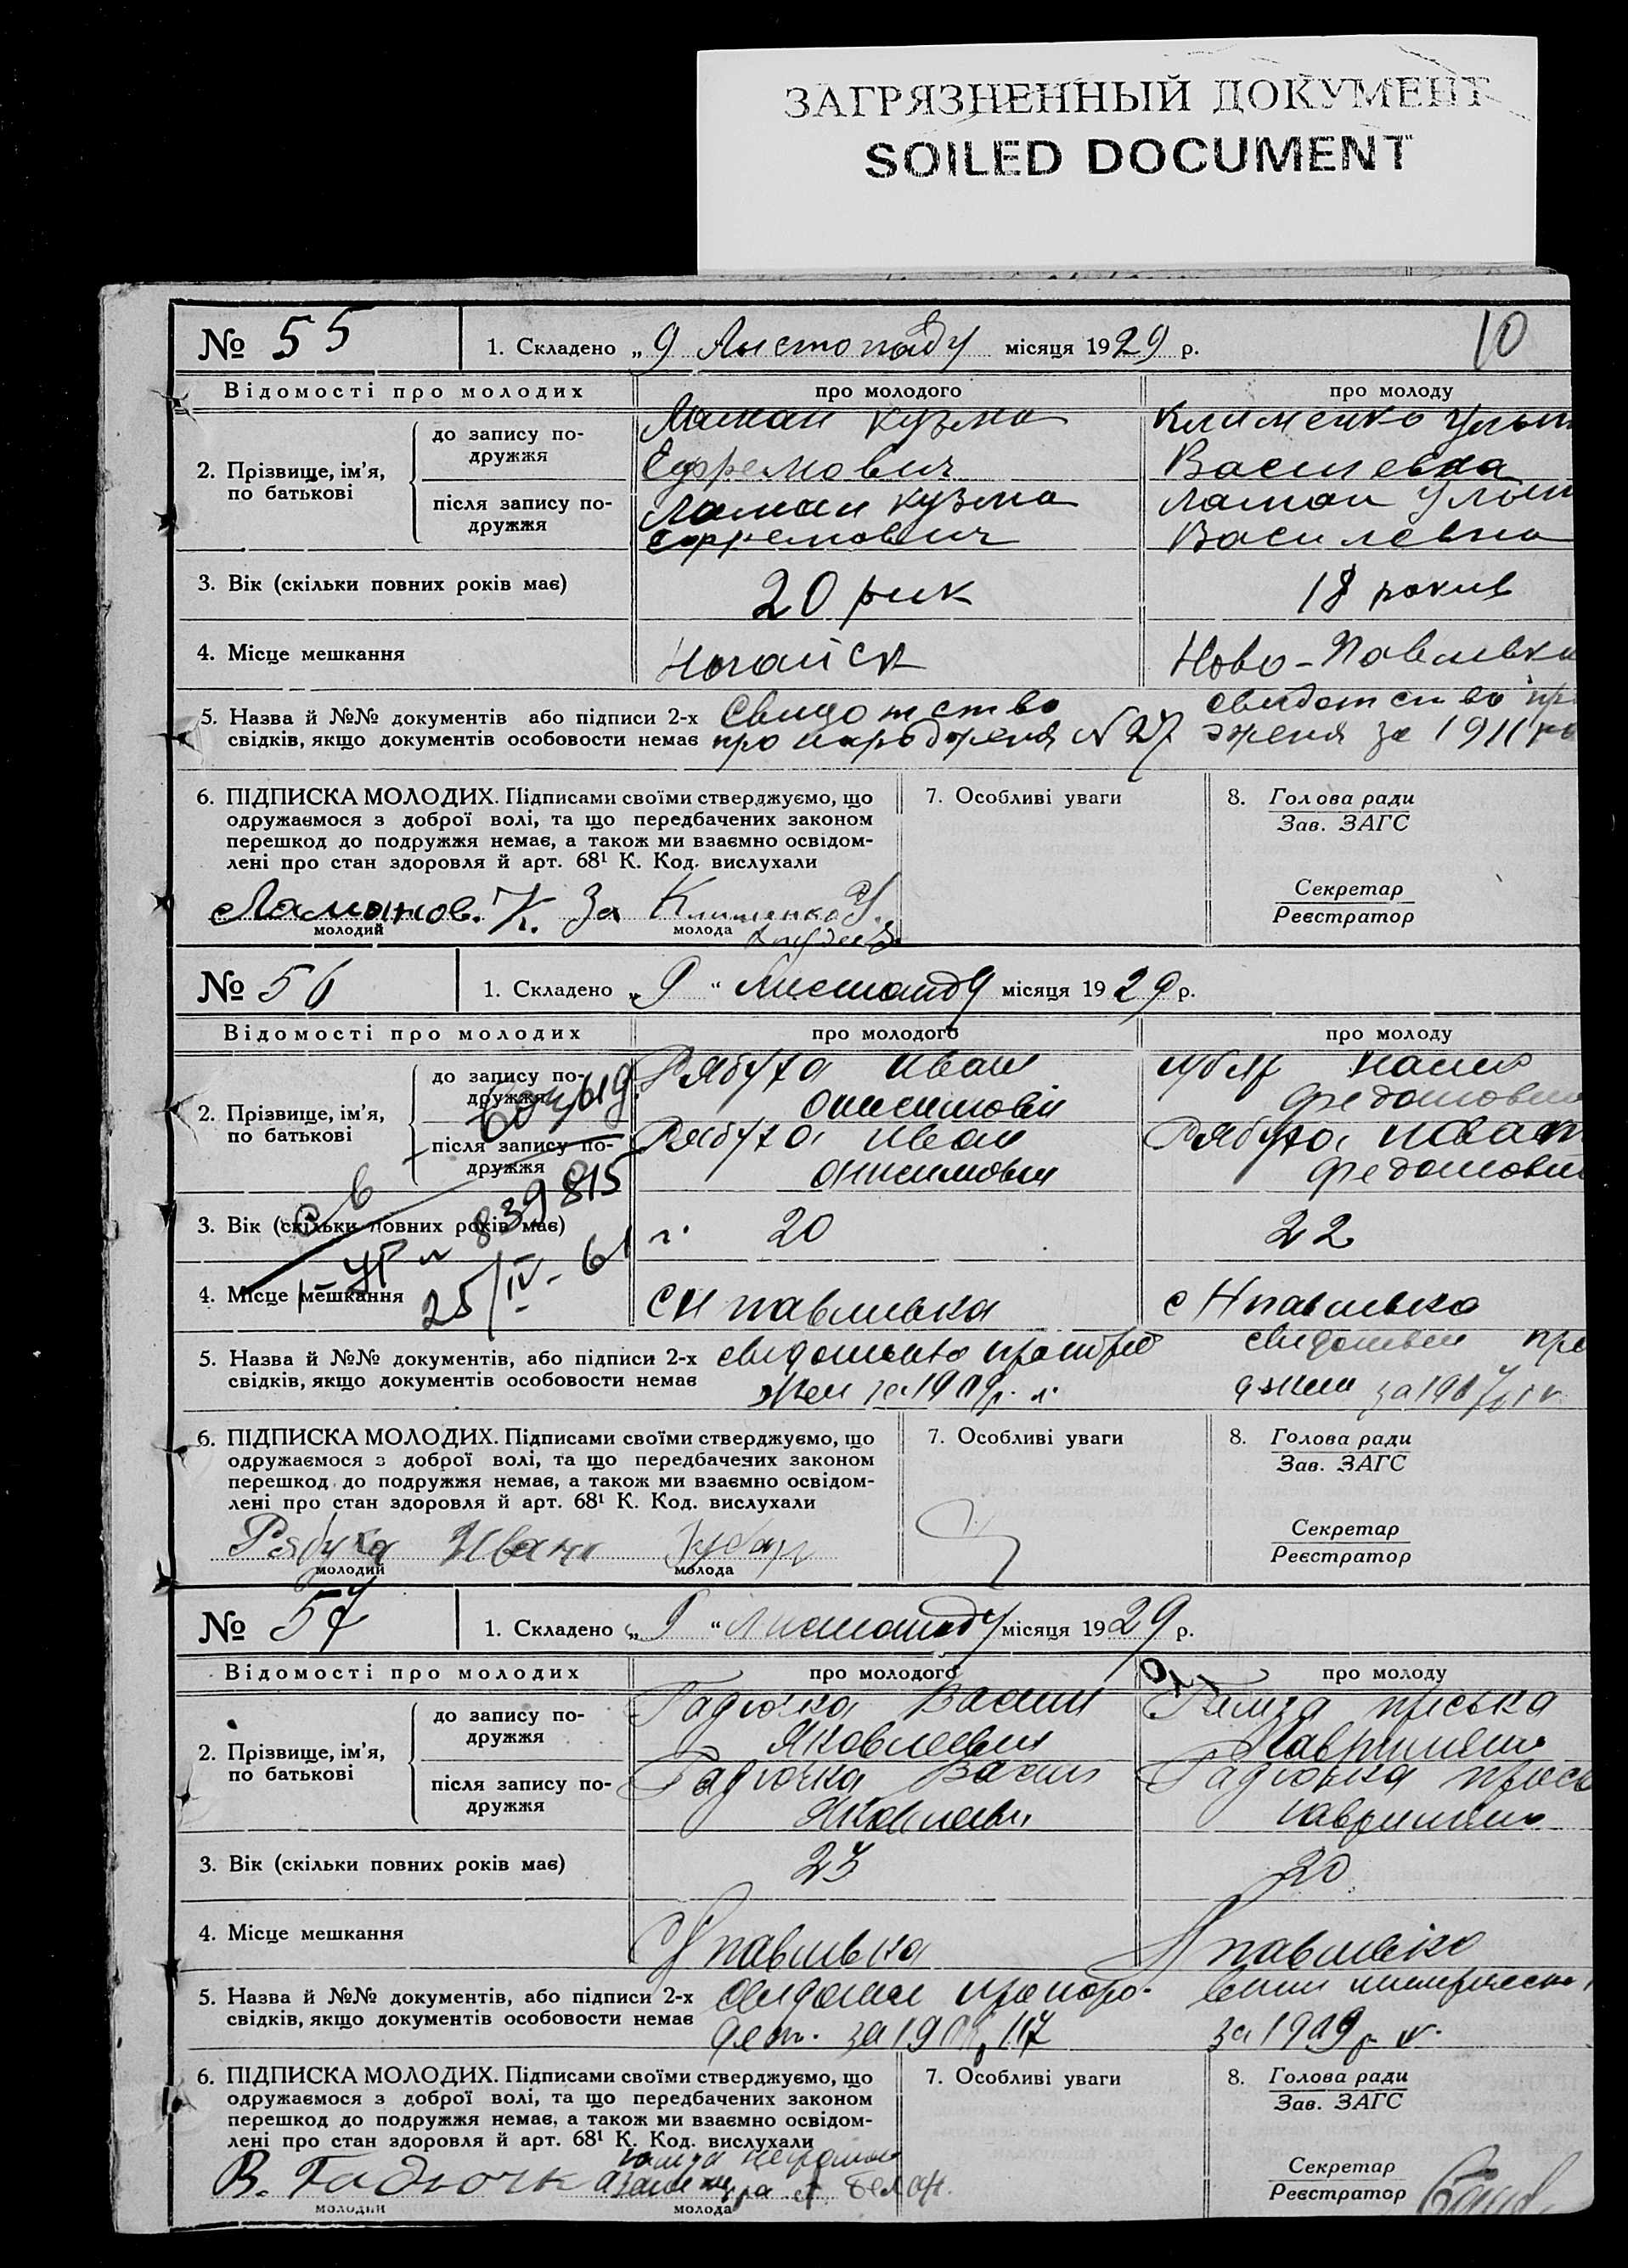 ЗАГРЯЗНЕННЫЙ ДОКУМЕНТ
SOILED DOCUMENT
10
№ 55
1. Складено „ 9 Листопаду місяця 1929 р.
Відомості про молодих
про молодого
про молоду
2. Прізвище, ім'я, по батькові
до запису по-
дружжя
Ламан Кузма
Ефремович
Клименко Улья
Василевна
після запису по-
дружжя
Ламан Кузма
Ефремович
Ламан Улья
Василевна
3. Вік (скільки повних років має)
20 рик
18 рокив
4. Місце мешкання
Ногайск
Ново-Павливка
5. Назва й №№ документів або підписи 2-х
свідків, якщо документів особовости немає
Свидотство
про народженя N 27
свидотство пр
дженя за 1911 ро
6. ПІДПИСКА МОЛОДИХ. Підписами своїми стверджуємо, що
одружаємося з доброї волі, та що передбачених законом
перешкод до подружжя немає, а також ми взаємно освідом-
лені про стан здоровля й арт. 68¹ К. Код. вислухали
Ламанов. К. За Клименко У.
молодий
молода
7. Особливі уваги
8. Голова ради
Зав. ЗАГС
Секретар
Реєстратор
№ 56
1. Складено „ 9 “ Листопаду місяця 1929 р.
Відомості про молодих
про молодого
про молоду
2. Прізвище, ім'я,
по батькові
до запису по-
дружжя
Рябуха Иван
Онисимовы
Федотовы
після запису по-
дружжя
Рябуха Иван
Онисимовы
Рябуха
Федотовы
839815
25/IV-61
3. Вік (скільки повних років має)
20
22
4. Місце мешкання
с Н павливка
с Н павливка
5. Назва й №№ документів, або підписи 2-х
свідків, якщо документів особовости немає
за 1909 р.
за 1907
6. ПІДПИСКА МОЛОДИХ. Підписами своїми стверджуємо, що
одружаємося з доброї волі, та що передбачених законом
перешкод до подружжя немає, а також ми взаємно освідом-
лені про стан здоровля й арт. 68¹ К. Код. вислухали
Рябуха Иван
молодий
молода
7. Особливі уваги
8. Голова ради
Зав. ЗАГС
Секретар
Реєстратор
№ 57
1. Складено „ 9 “ Листопаду місяця 1929 р.
Відомості про молодих
про молодого
про молоду
2. Прізвище, ім'я,
по батькові
до запису по-
дружжя
Гадючка Васил
Яковлевич
Пріська
після запису по-
дружжя
Гадючка Васил
Яковлевич
Гадючка Прось
3. Вік (скільки повних років має)
23
20
4. Місце мешкання
Н павливка
Н павливка
5. Назва й №№ документів, або підписи 2-х
свідків, якщо документів особовости немає
за 1909 р.
6. ПІДПИСКА МОЛОДИХ. Підписами своїми стверджуємо, що
одружаємося з доброї волі, та що передбачених законом
перешкод до подружжя немає, а також ми взаємно освідом-
лені про стан здоровля й арт. 68¹ К. Код. вислухали
В. Гадючк
молодий
молода
7. Особливі уваги
8. Голова ради
Зав. ЗАГС
Секретар
Реєстратор